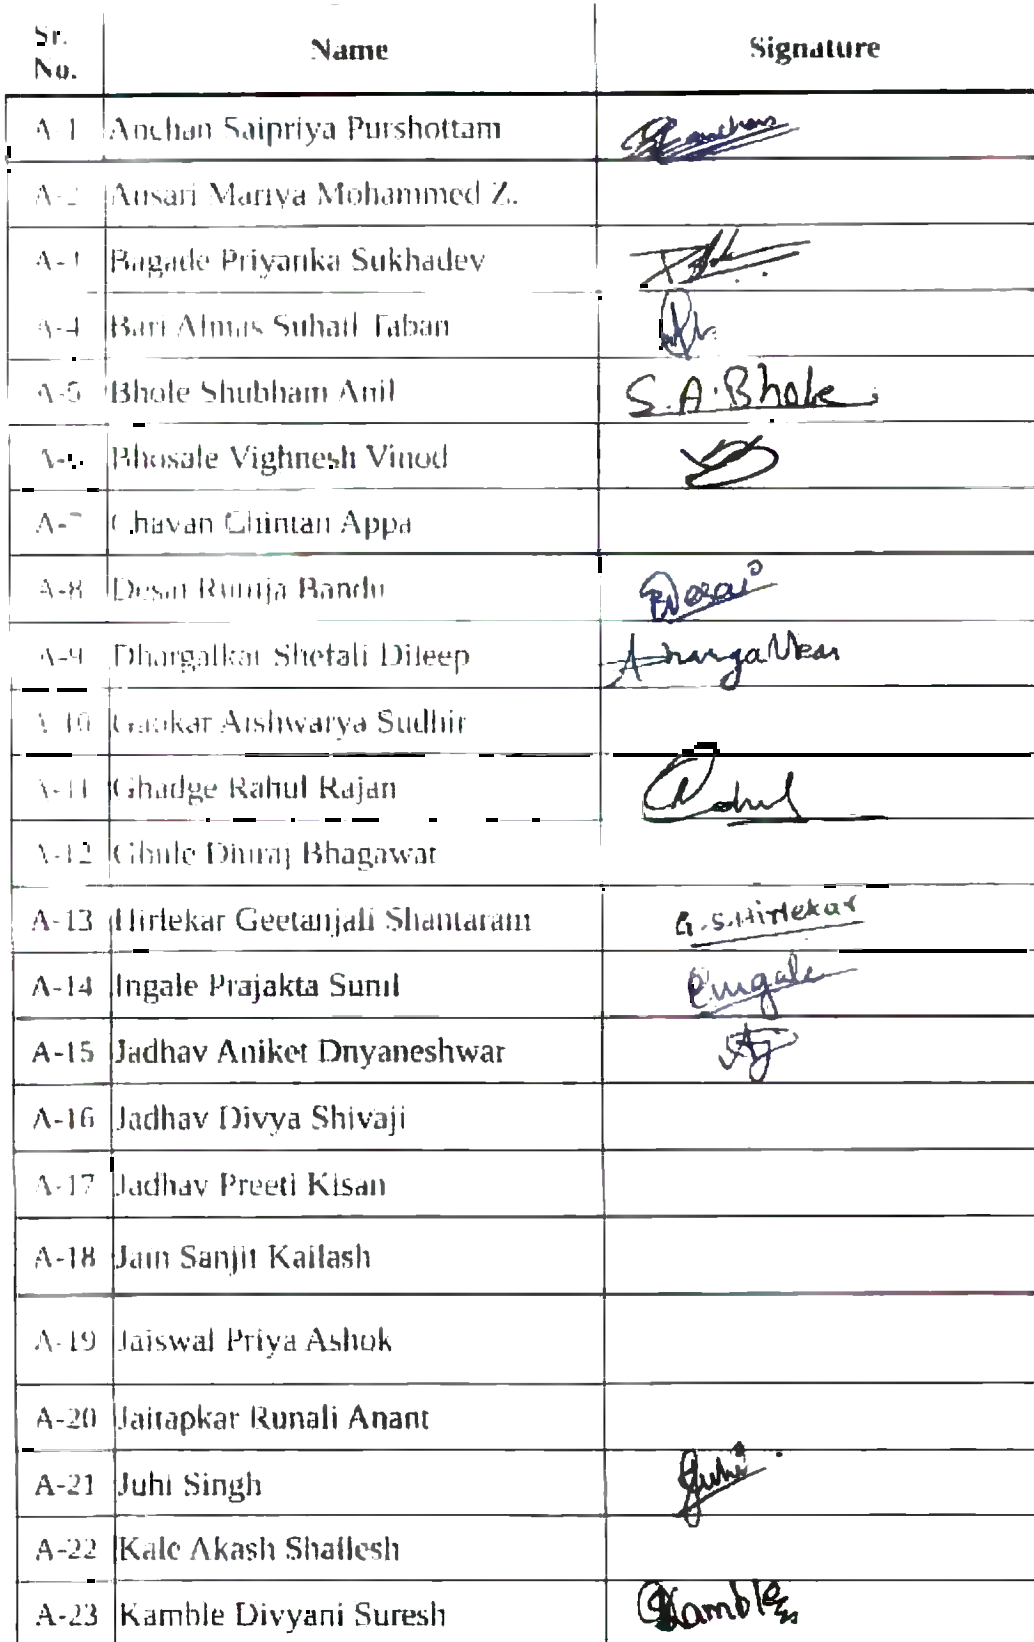 Sr. No. Name Signature
A-1 Anchan Saipriya Purshottam
A-2 Ansari Mariya Mohammed Z.
A-3 Bagade Priyanka Sukhadev
A-4 Bari Almas Suhail Taban
A-5 Bhole Shubham Anil S.A.Bhole
A-6 Bhosale Vighnesh Vinod
A-7 Chavan Chintan Appa
A-8 Desai Rutuja Bandu Desai
A-9 Dhargalkar Shefali Dileep
A-10 Gaokar Aishwarya Sudhir
A-11 Ghadge Rahul Rajan Rahul
A-12 Ghule Dhiraj Bhagawat
A-13 Hirlekar Geetanjali Shantaram G.S.Hirlekar
A-14 Ingale Prajakta Sunil Pingale
A-15 Jadhav Aniket Dnyaneshwar
A-16 Jadhav Divya Shivaji
A-17 Jadhav Preeti Kisan
A-18 Jain Sanjit Kailash
A-19 Jaiswal Priya Ashok
A-20 Jaitapkar Runali Anant
A-21 Juhi Singh Juhi
A-22 Kale Akash Shailesh
A-23 Kamble Divyani Suresh Kamble